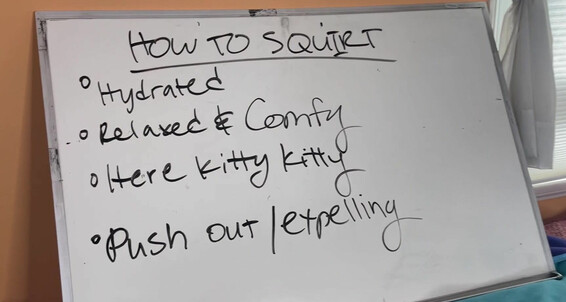 HOW TO SQUIRT
• Hydrated
• Relaxed & Comfy
• Here Kitty Kitty
• Push out/expelling